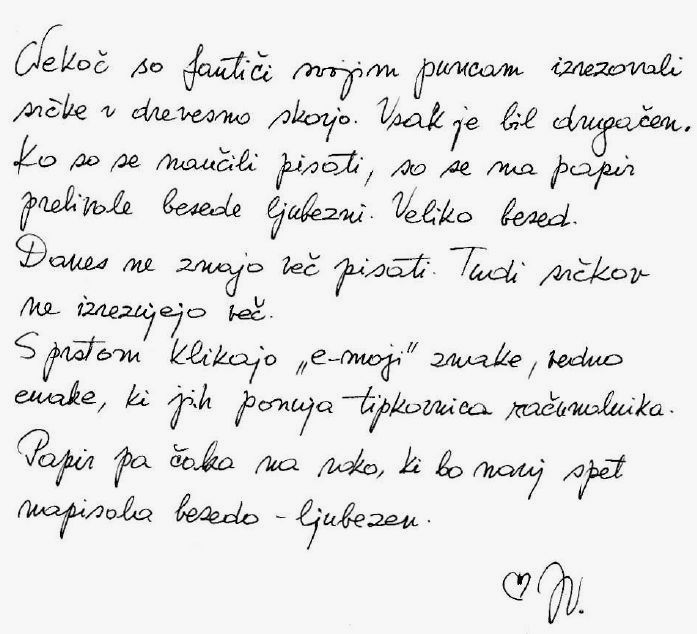 Nekoč so fantiči svojim puncam izrezovali
srčke v drevesno skorjo. Vsak je bil drugačen.
Ko so se naučili pisati, so se na papir
prelivale besede ljubezni. Veliko besed.
Danes ne znajo več pisati. Tudi srčkov
ne izrezujejo več.
S prstom klikajo „e-moji“ znake, vedno
enake, ki jih ponuja tipkovnica računalnika.
Papir pa čaka na roko, ki bo nanj spet
napisala besedo - ljubezen.